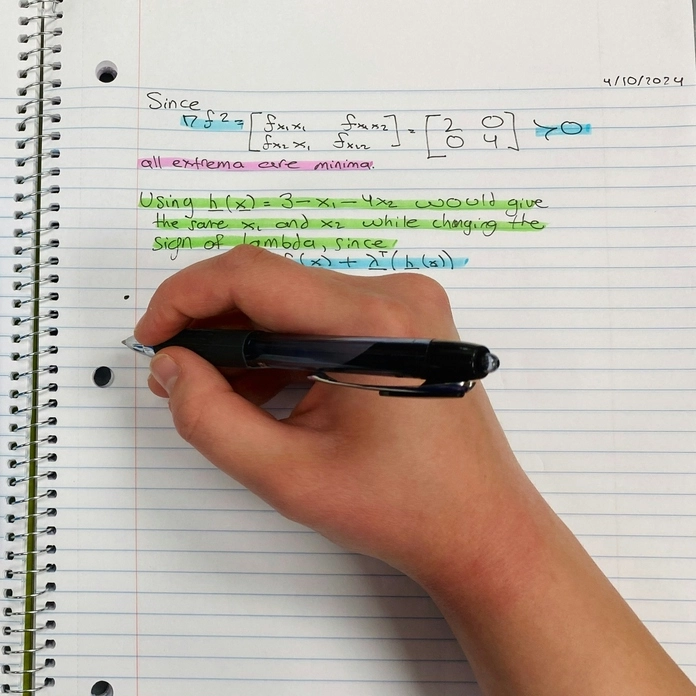 4/10/2024
Since
∇f2 = [ fx₁x₁ fx₁x2 ] = [ 2 0 ] ≻0
[ fx₂x₁ fx₂₂ ] [ 0 4 ]
all extrema are minima.
Using h(x) = 3-x₁-4x₂ would give
the same x₁ and x₂ while changing the
sign of lambda, since
f(x) + λᵀ(h(x))